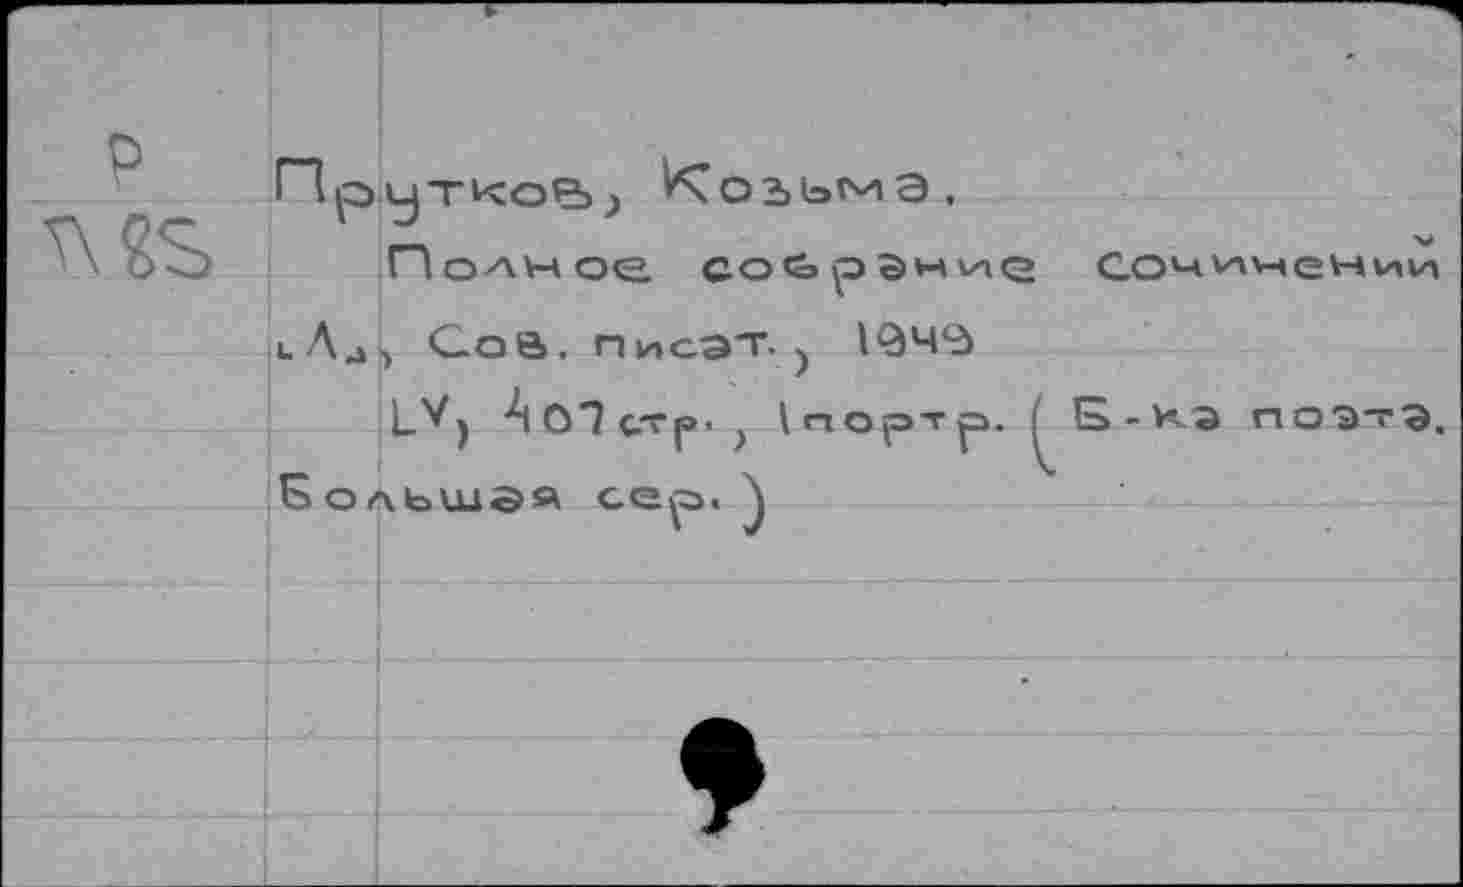 Р
П85
Прутков, Козьма.
Полное собрание сочинений
[Л], Сов. писат., 1949
LV, 407 стр., 1 портр. (Б-ка поэта.
Большая сер.)